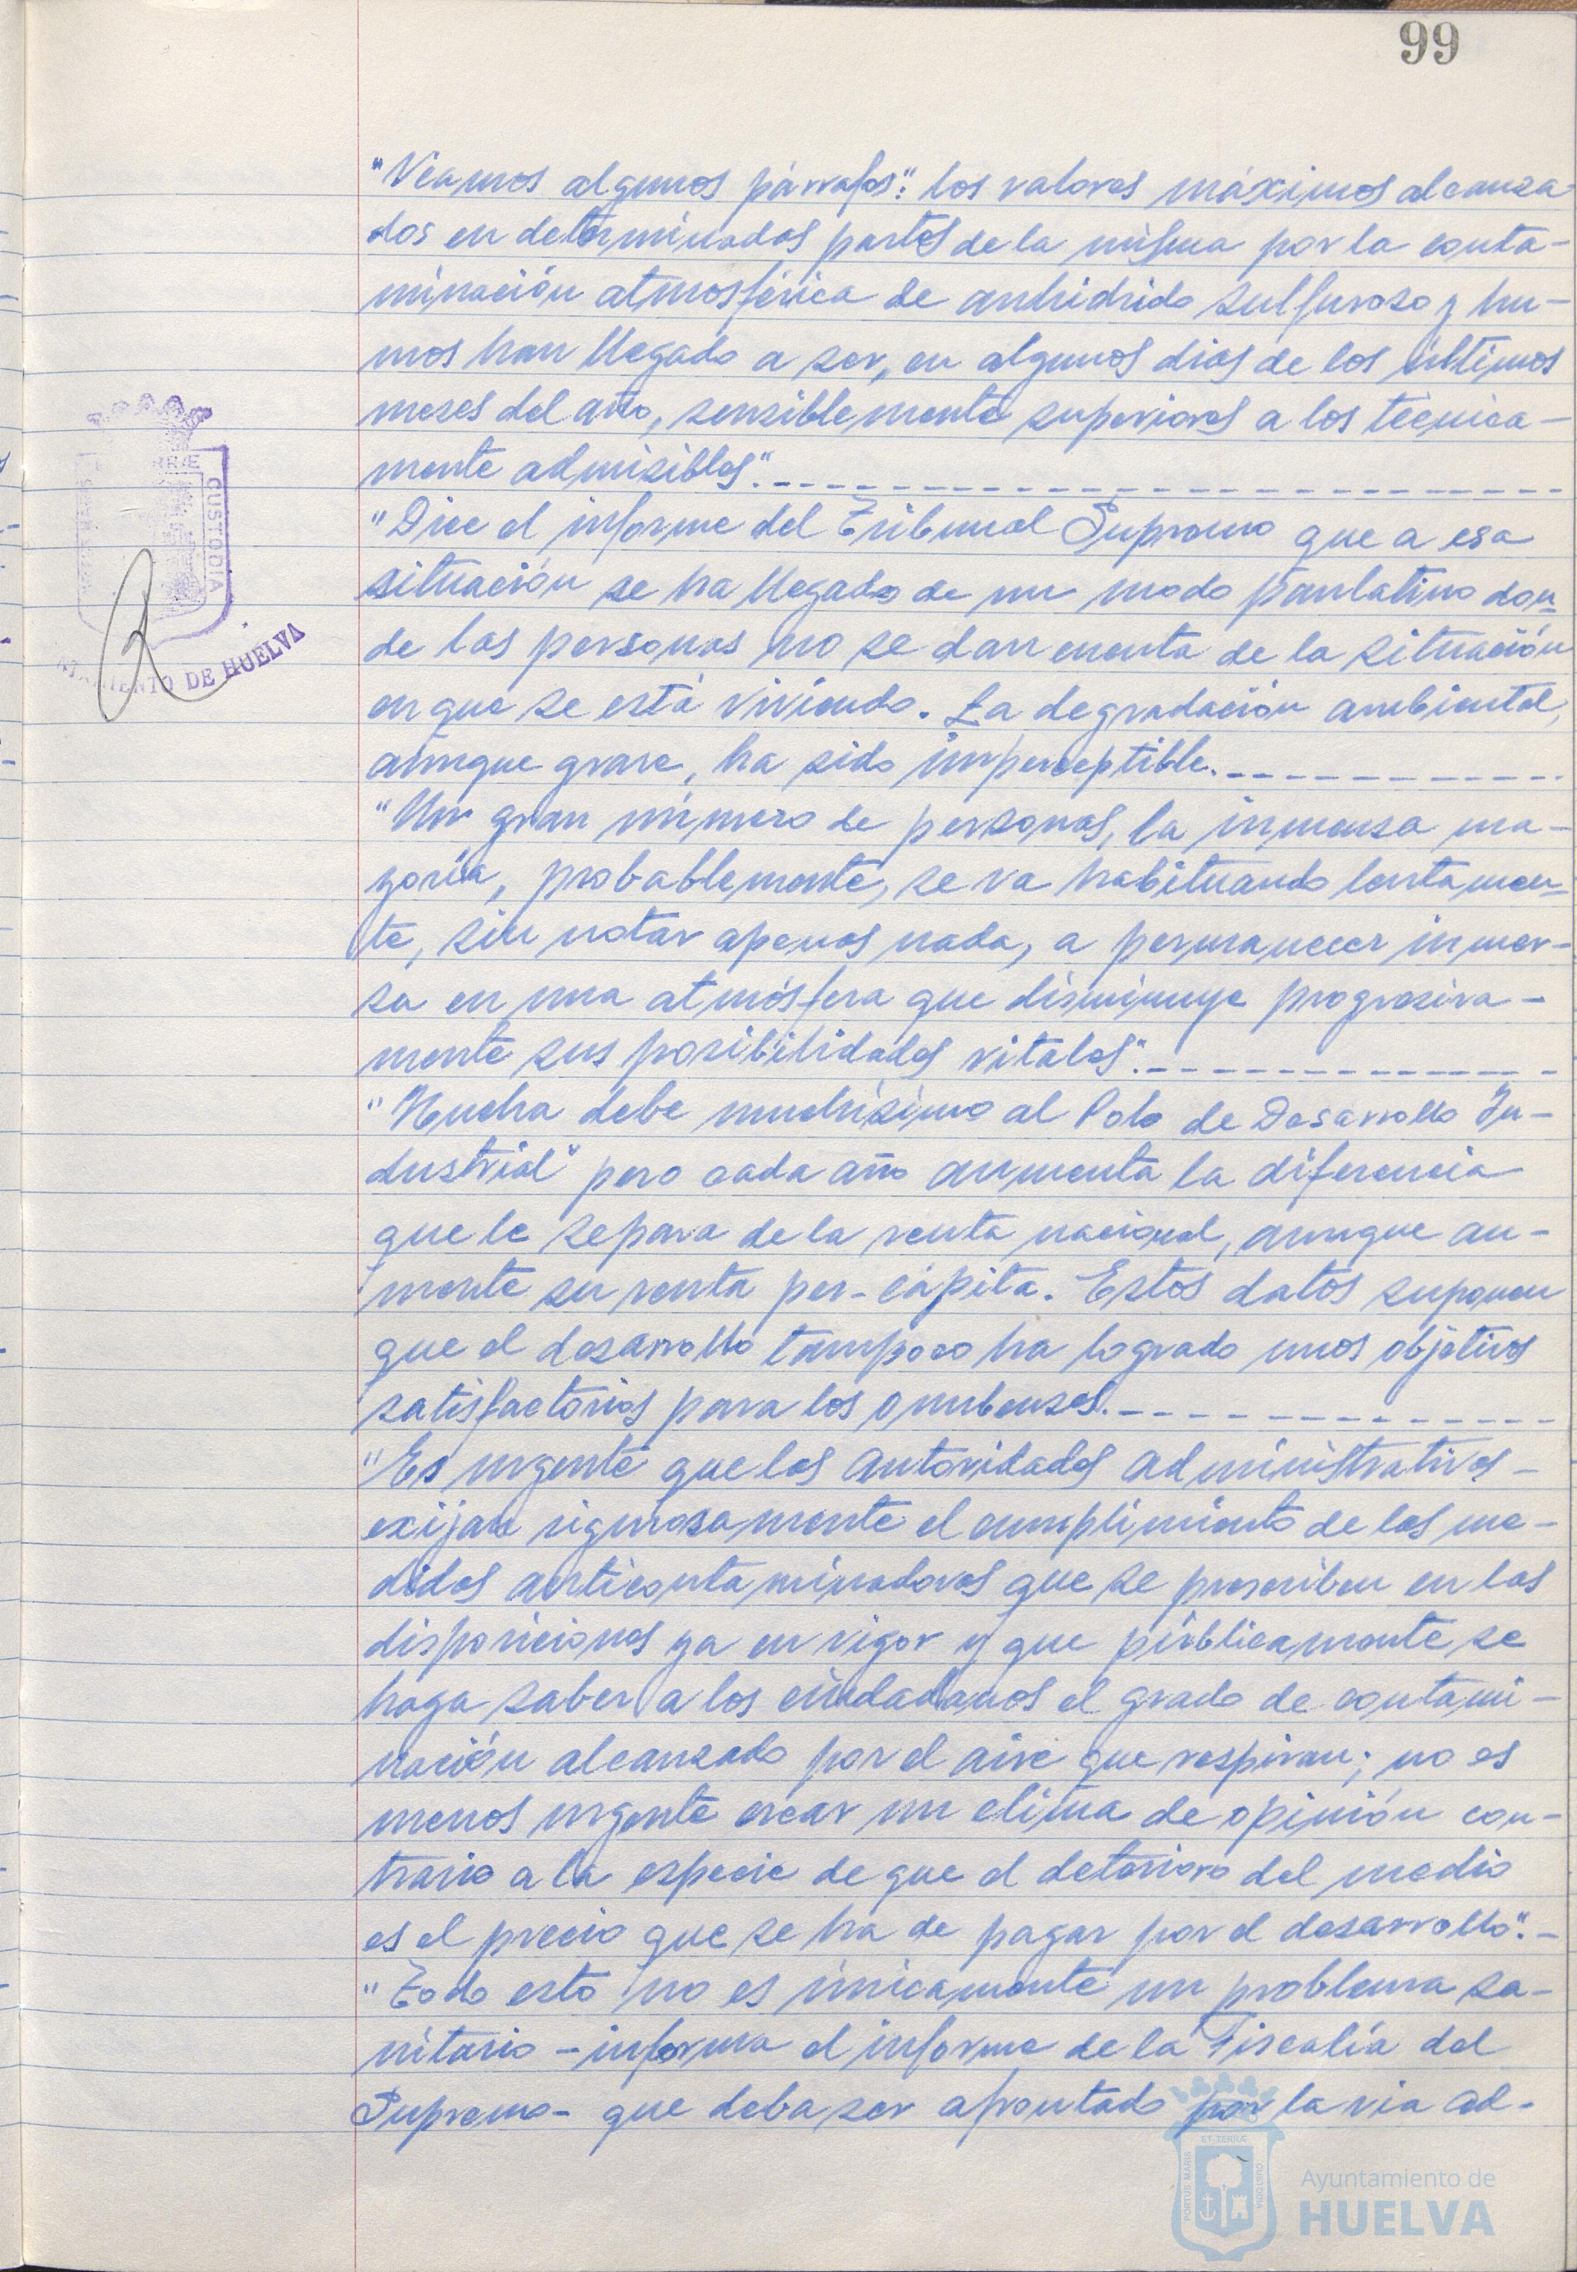 99
"Veamos algunos párrafos": los valores máximos alcanza-
dos en determinadas partes de la misma por la conta-
minación atmosférica de anhidrido sulfuroso y hu-
mos han llegado a ser, en algunos dias de los últimos
meses del año, sensiblemente superiores a los técnica-
mente admisibles".
"Dice el informe del Tribunal Supremo que a esa
situación se ha llegado de un modo paulatino don-
de las personas no se dan cuenta de la situación
en que se está viviendo. La degradación ambiental,
aunque grave, ha sido imperceptible.
"Un gran número de personas, la inmensa ma-
yoría, probablemente, se va habituando lentamen-
te, sin notar apenas nada, a permanecer inmer-
sa en una atmósfera que disminuye progresiva-
mente sus posibilidades vitales".
"Huelva debe muchísimo al Polo de Desarrollo In-
dustrial" pero cada año aumenta la diferencia
que le separa de la renta nacional, aunque au-
mente su renta per-cápita. Estos datos suponen
que el desarrollo tampoco ha logrado unos objetivos
satisfactorios para los onubenses.
"Es urgente que las autoridades administrativas
exijan rigurosamente el cumplimiento de las me-
didas anticontaminadoras que se prescriben en las
disposiciones ya en vigor y que públicamente se
haga saber a los ciudadanos el grado de contami-
nación alcanzado por el aire que respiran; no es
menos urgente crear un clima de opinión con-
trario a la especie de que el deterioro del medio
es el precio que se ha de pagar por el desarrollo".-
"Todo esto no es únicamente un problema sa-
nitario - informa el informe de la Fiscalía del
Supremo - que deba ser afrontado por la via ad-
RRÆ
CUSTODIA
AMIENTO DE HUELVA
ET TERRÆ
PORTUS MARIS
CUSTODIA
Ayuntamiento de
HUELVA